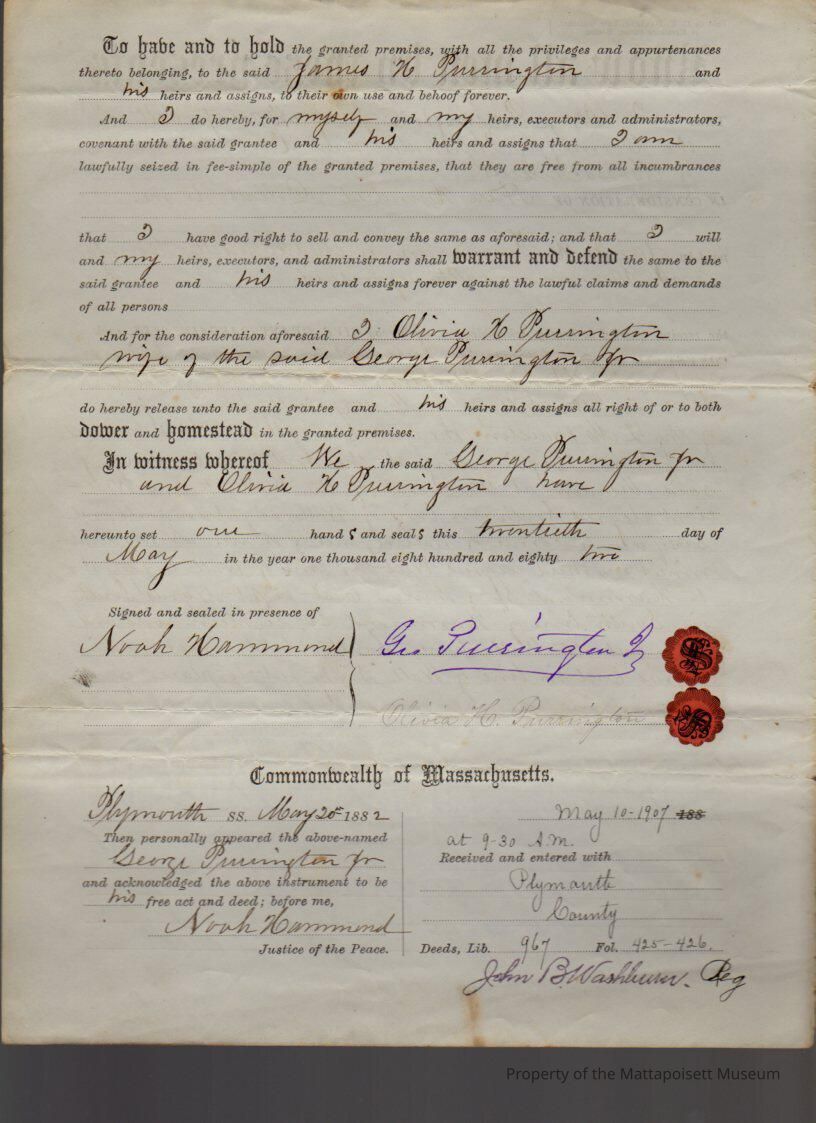 To have and to hold the granted premises, with all the privileges and appurtenances
thereto belonging, to the said James H Purrington and
his heirs and assigns, to their own use and behoof forever.
And I do hereby, for myself and my heirs, executors and administrators,
covenant with the said grantee and his heirs and assigns that I am
lawfully seized in fee-simple of the granted premises, that they are free from all incumbrances
that I have good right to sell and convey the same as aforesaid; and that I will
and my heirs, executors, and administrators shall warrant and defend the same to the
said grantee and his heirs and assigns forever against the lawful claims and demands
of all persons
And for the consideration aforesaid I Olivia H Purrington
wife of the said George Purrington Jr
do hereby release unto the said grantee and his heirs and assigns all right of or to both
dower and homestead in the granted premises.
In witness whereof We the said George Purrington Jr
and Olivia H Purrington have
hereunto set our hands and seals this twentieth day of
May in the year one thousand eight hundred and eighty two
Signed and sealed in presence of
Noah Hammond
Geo Purrington Jr
Olivia H. Purrington
Commonwealth of Massachusetts.
Plymouth ss. May 20th 1882
Then personally appeared the above-named
George Purrington Jr
and acknowledged the above instrument to be
his free act and deed; before me,
Noah Hammond
Justice of the Peace.
May 10-1907 188
at 9-30 A.M.
Received and entered with
Plymouth
County
Deeds, Lib. 967 Fol. 425-426.
John B. Washburn. Reg
Property of the Mattapoisett Museum